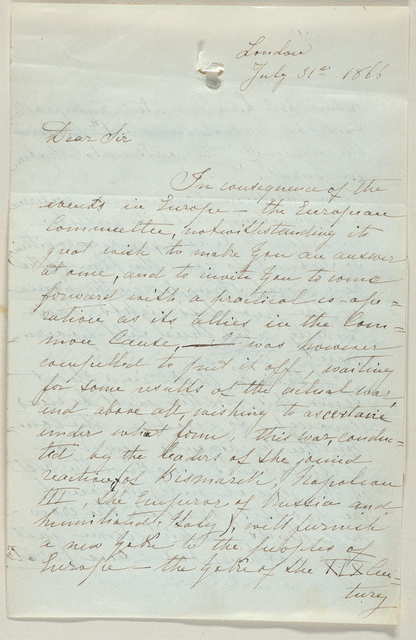 London
July 31st 1866
Dear Sir
In consequence of the
events in Europe – the European
Committee, notwithstanding its
great wish to make You an answer
at once, and to invite You to come
forward with a practical co-ope-
ration as its allies in the Com-
mon Cause, – It was however
compelled to put it off, waiting
for some results of the actual war,
and above all, wishing to ascertain
under what form, this war, conduc-
ted by the leaders of the joined
reaction (of Bismarck, Napoleon
III, the Emperor of Russia and
humiliated Italy), will furnish
a new Yoke to the peoples of
Europe – the Yoke of the XIX Cen-
tury